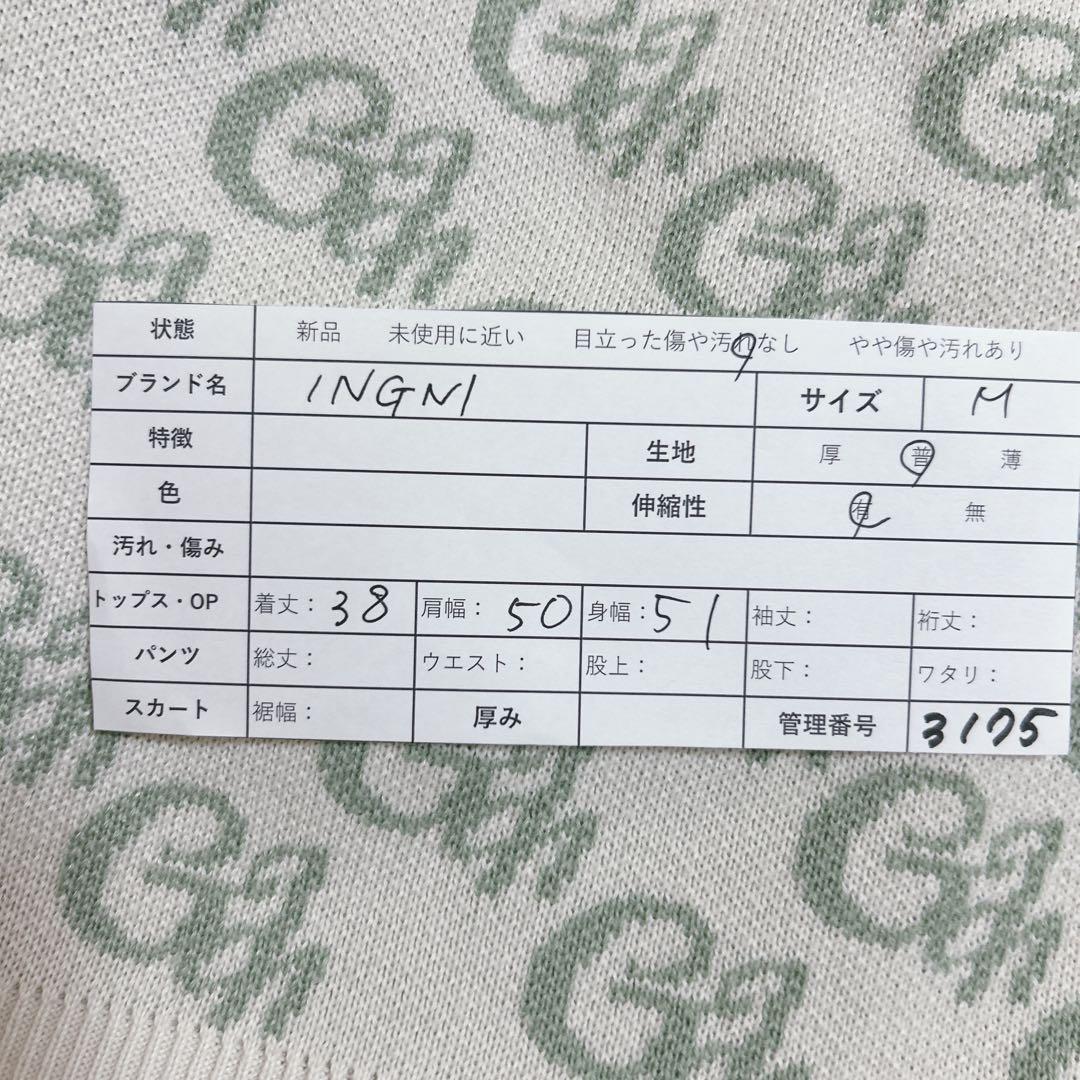 状態 新品 未使用に近い 目立った傷や汚れなし やや傷や汚れあり
ブランド名 INGNI サイズ M
特徴 生地 厚 普 薄
色 伸縮性 有 無
汚れ・傷み
トップス・OP 着丈：38 肩幅：50 身幅：51 袖丈： 裄丈：
パンツ 総丈： ウエスト： 股上： 股下： ワタリ：
スカート 裾幅： 厚み 管理番号 3175